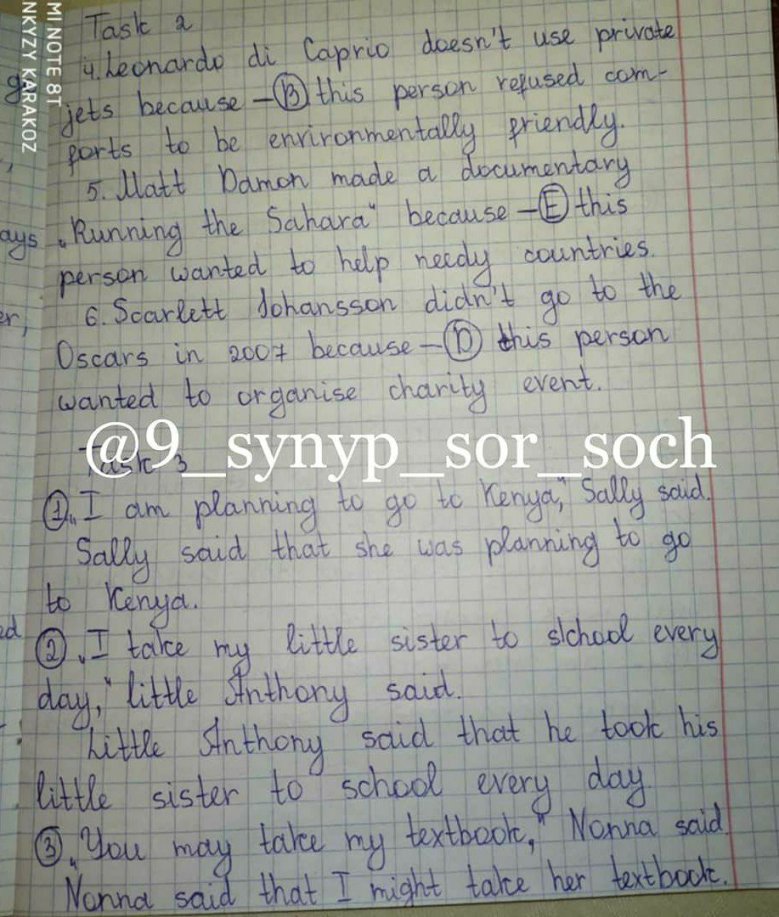 MI NOTE 8T
NKYZY KARAKOZ
Task 2
4. Leonardo di Caprio doesn't use private
jets because – (B) this person refused com-
forts to be environmentally friendly.
5. Matt Damon made a documentary
„Running the Sahara" because – (E) this
person wanted to help needy countries.
6. Scarlett Johansson didn't go to the
Oscars in 2007 because – (D) this person
wanted to organise charity event.
@9_synyp_sor_soch
Task 3
(1) „I am planning to go to Kenya," Sally said.
Sally said that she was planning to go
to Kenya.
(2) „I take my little sister to school every
day," little Anthony said.
Little Anthony said that he took his
little sister to school every day
(3) „You may take my textbook," Nonna said.
Nonna said that I might take her textbook.